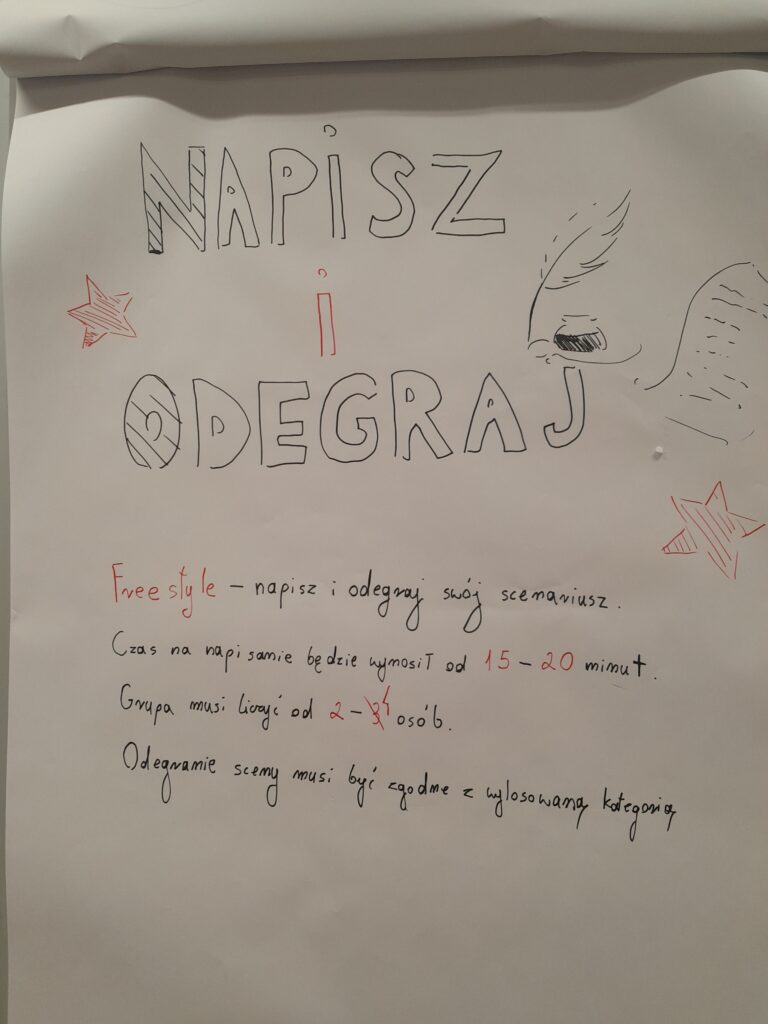 NAPISZ
i
ODEGRAJ
Freestyle – napisz i odegraj swój scenariusz.
Czas na napisanie będzie wynosił od 15 – 20 minut.
Grupa musi liczyć od 2 – 4 osób.
Odegranie sceny musi być zgodne z wylosowaną kategorią